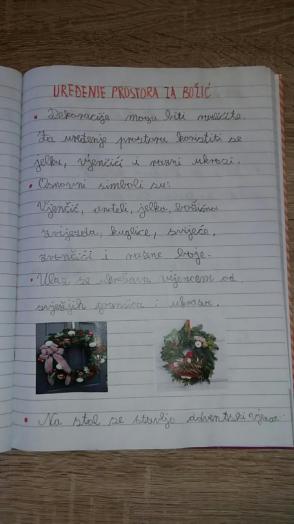 UREĐENJE PROSTORA ZA BOŽIĆ
• Dekoracije mogu biti različite.
Za uređenje prostora koristiti se
jelka, vjenčići i razni ukrasi.
• Osnovni simboli su:
Vjenčić, anđeli, jelka, božićna
zvijezda, kuglice, svijeće,
zvončići i razne boje.
• Ulaz se ukrašava vijencem od
svježih grančica i ukrasa.
• Na stol se stavlja adventski vijenac.